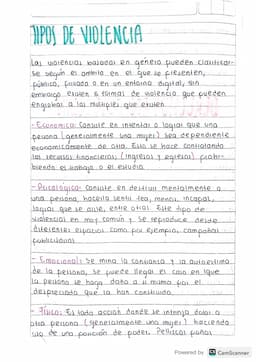 TIPOS DE VIOLENCIA
Las violencias basadas en género pueden clasificar-
se según el ambito en el que se presenten,
público, privado o en un entorno digital, sin
embargo existen 6 formas de violencia que pueden
englobar a las múltiples que existen
- Económica: Consiste en intentar o lograr que una
persona (generalmente una mujer) sea dependiente
económicamente de otra. Esto se hace controlando
los recursos financieros (ingresos y egresos) prohi-
biendo el trabajo o el estudio.
- Psicológica: Consiste en destruir mentalmente a
una persona, hacerla sentir fea, menos, incapaz,
lograr que se aisle, entre otras. Este tipo de
violencias es muy común y se reproduce desde
diferentes espacios como por ejemplo, campañas
publicitarias
- Emocional: Se mina la confianza y la autoestima
de la persona, se puede llegar el caso en que
la persona se haga daño a si misma por el
desprecio que ha construido.
- Física: Es toda acción donde se intenta dañar a
otra persona (generalmente una mujer) haciendo
uso de una posición de poder. Pellizcos, puños,
Powered by CS CamScanner